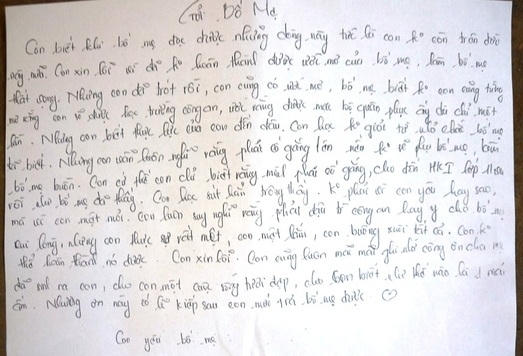 Gửi Bố Mẹ
Con biết khi bố mẹ đọc được những dòng này tức là con ko còn trên đời
này nữa. Con xin lỗi vì đã ko hoàn thành được ước mơ của bố mẹ, làm bố mẹ
thất vọng. Nhưng con đã trót rồi, con cũng có ước mơ, bố mẹ biết ko con cũng từng
mơ rằng con sẽ được học trường công an, ước rằng được mặc bộ quân phục ấy dù chỉ một
lần. Nhưng con biết thực lực của con đến đâu. Con học ko giỏi từ nhỏ chắc bố mẹ
biết. Nhưng con luôn luôn nghĩ rằng phải cố gắng lên nếu ko sẽ phụ bố mẹ, làm
bố mẹ buồn. Con có thể con chỉ biết rằng mình phải cố gắng, cho đến HKI lớp 11
rồi như bố mẹ đã thấy. Con học sút hẳn trông thấy. Ko phải vì con yêu hay sao,
mà vì con mệt mỏi. Con luôn suy nghĩ rằng phải đậu công an hay y cho bố mẹ
vui lòng, nhưng con thực sự rất mệt, con mệt lắm, con buông xuôi tất cả. Con ko
thể hoàn thành nó được. Con xin lỗi. Con cũng luôn mãi mãi ghi nhớ công ơn cha mẹ
đã sinh ra con, cho con một cuộc sống tươi đẹp, cho con biết như thế nào là 1 mái
ấm. Nhưng ơn này có lẽ kiếp sau con mới trả bố mẹ được ♡
Con yêu bố mẹ